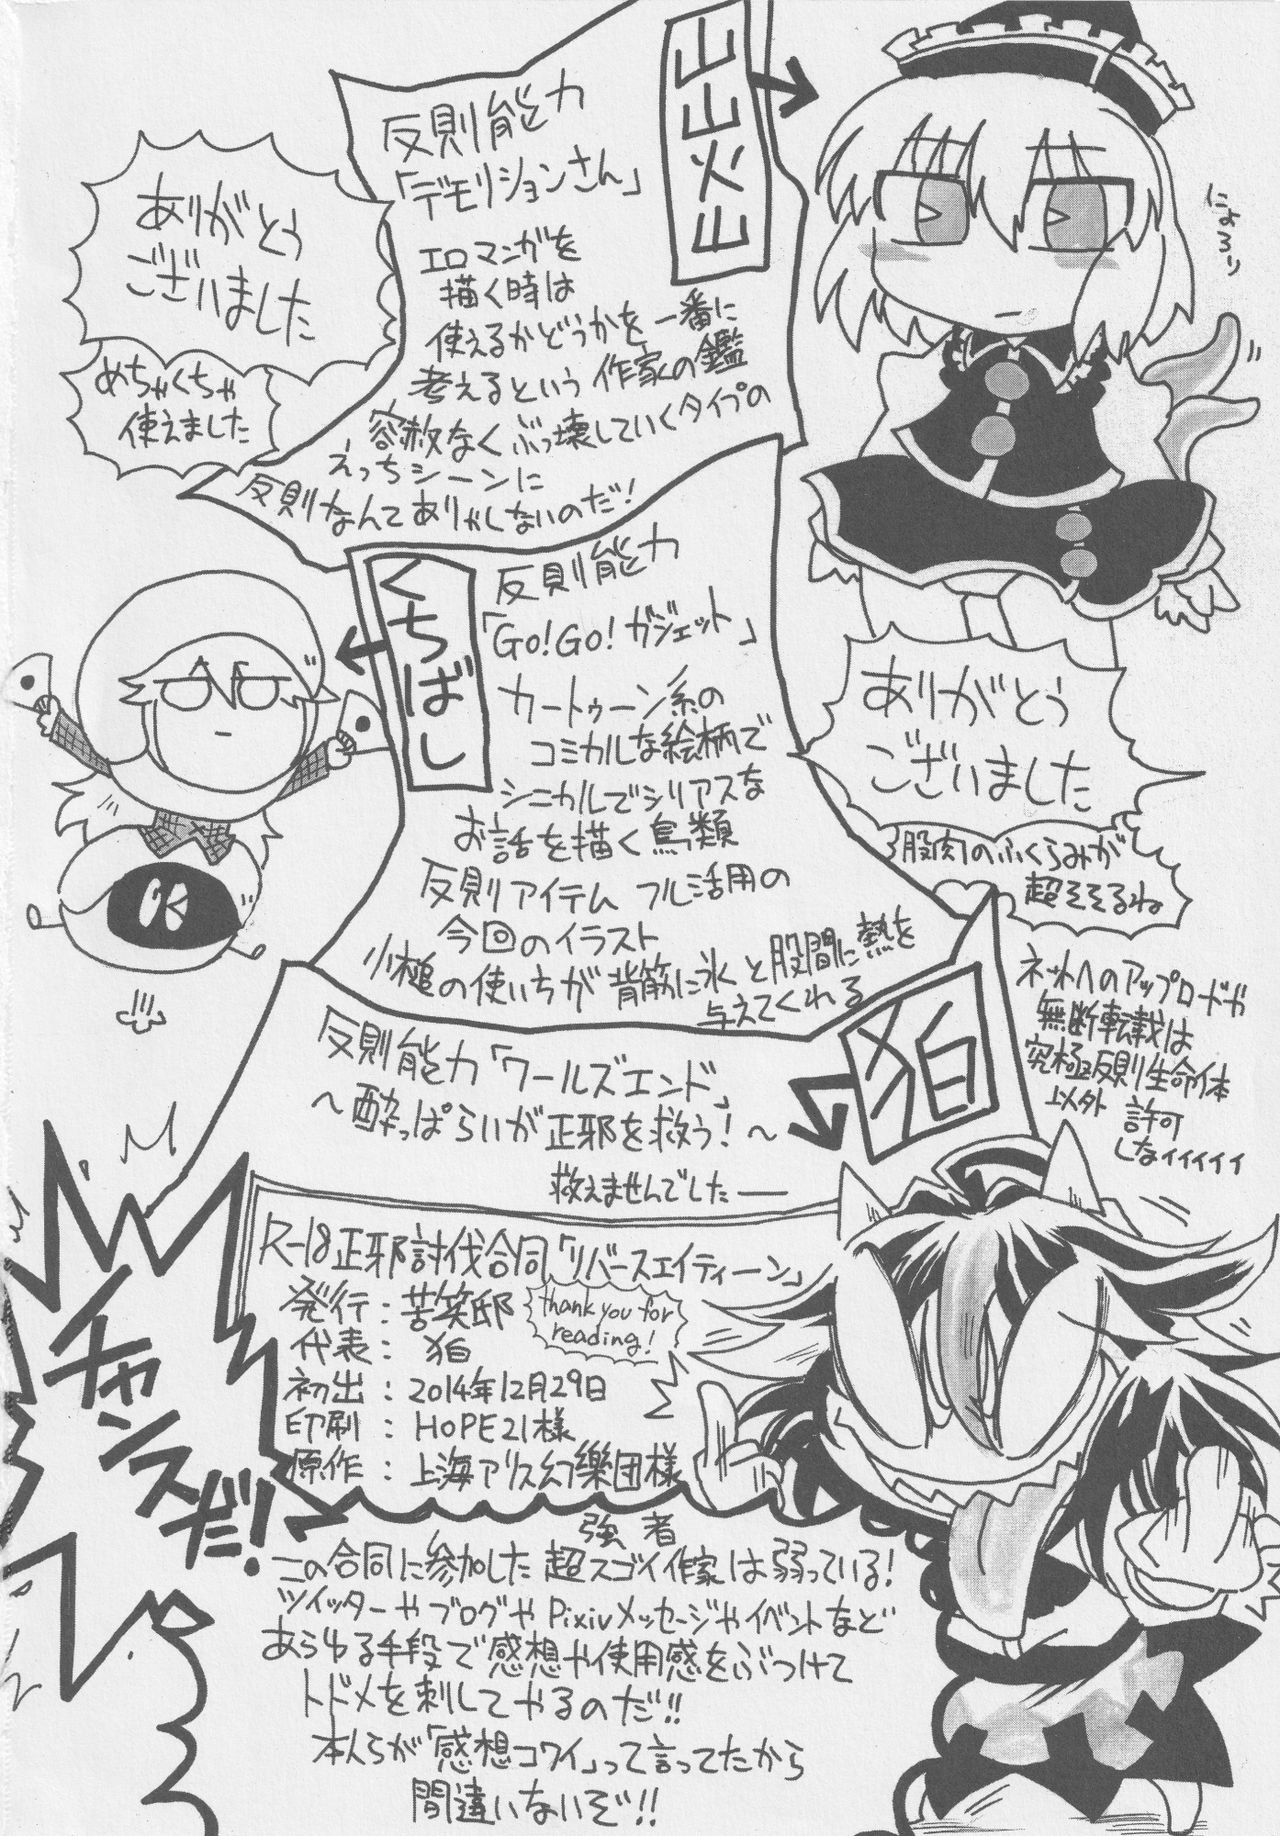 山出火山
反則能力
「デモリションさん」
エロマンガを
描く時は
使えるかどうかを一番に
考えるという作家の鑑
容赦なくぶっ壊していくタイプの
えっちシーンに
反則なんてありゃしないのだ!
にょろり
ありがとう
ございました
めちゃくちゃ
使えました
くちばし
反則能力
「GO!GO!ガジェット」
カートゥーン系の
コミカルな絵柄で
シニカルでシリアスな
お話を描く鳥類
反則アイテム フル活用の
今回のイラスト
小槌の使いちが背筋に氷と股間に熱を
与えてくれる
ありがとう
ございました
股肉のふくらみが
超そそるね
狛
反則能力「ワールズエンド」
～酔っぱらいが正邪を救う!～
救えませんでした――
ネットへのアップロードや
無断転載は
究極反則生命体
以外 許可
しなィィィィィ
R-18正邪討伐合同「リバースエイティーン」
発行:苦笑邸
代表: 狛
初出:2014年12月29日
印刷:HOPE21様
原作:上海アリス幻樂団様
thank you for
reading!
チャンスだ!
強者
この合同に参加した超スゴイ作家は弱っている!
ツイッターやブログやPixivメッセージやイベントなど
あらゆる手段で感想や使用感をぶつけて
トドメを刺してやるのだ!!
本人らが「感想コワイ」って言ってたから
間違いないぞ!!